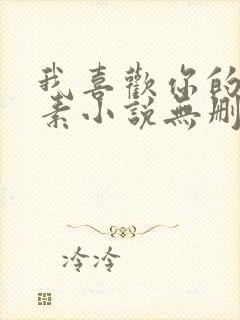 我喜歡你的
素小說無刪
冷冷